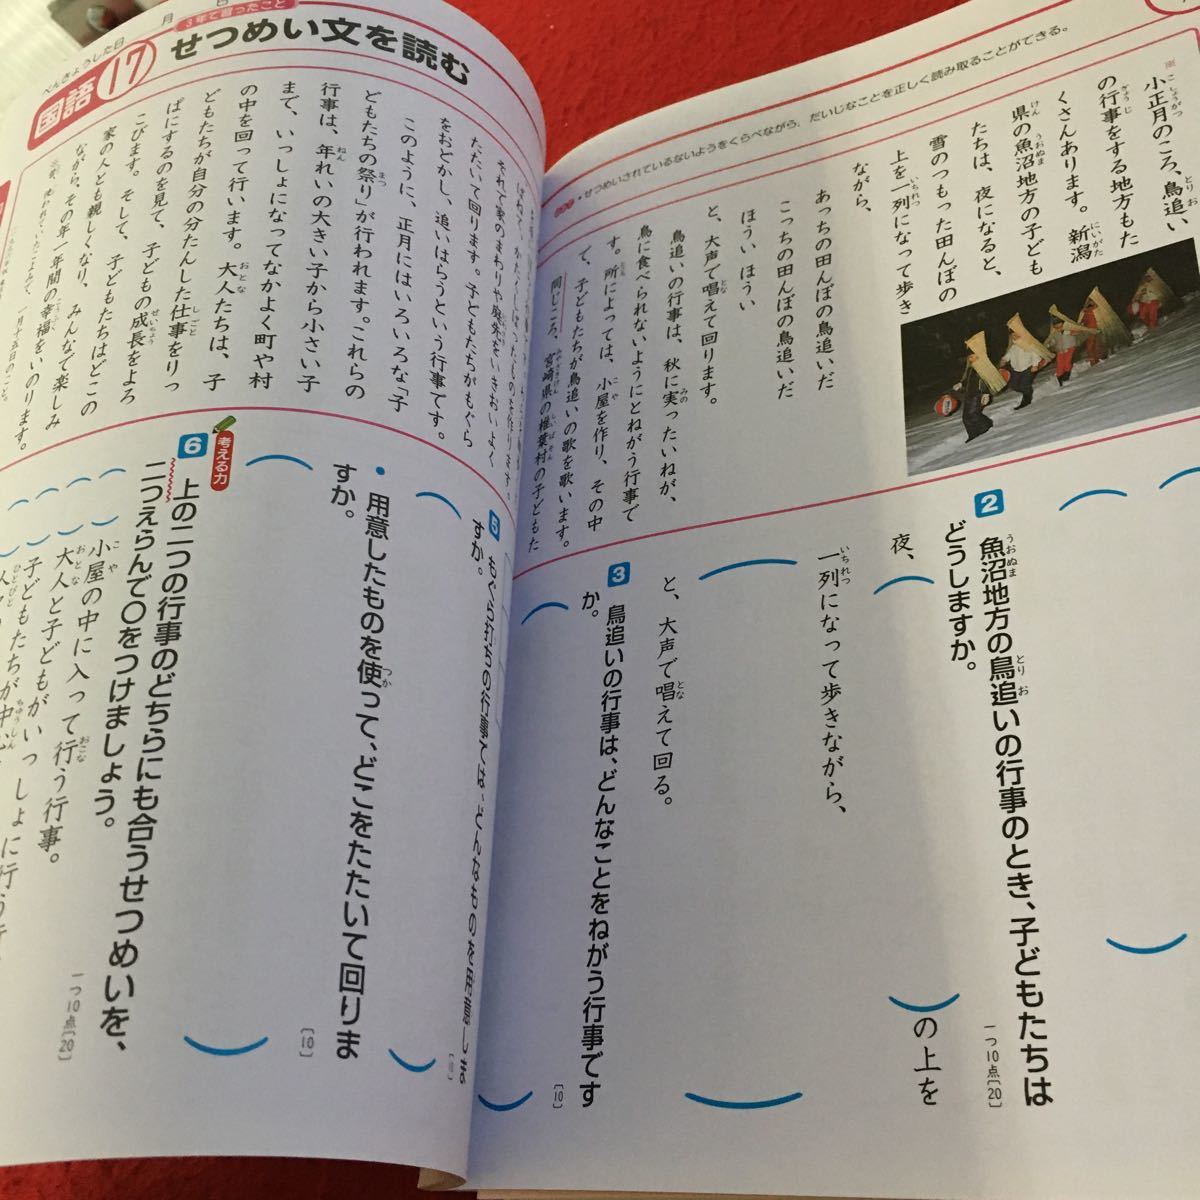 べんきょうした日
月
日
3年で習ったこと
国語 17
せつめい文を読む
・せつめいされているないようをくらべながら、だいじなことを正しく読み取ることができる。
※小正月のころ、鳥追い
の行事をする地方もた
くさんあります。新潟
県の魚沼地方の子ども
たちは、夜になると、
雪のつもった田んぼの
上を一列になって歩き
ながら、
あっちの田んぼの鳥追いだ
こっちの田んぼの鳥追いだ
ほうい ほうい
と、大声で唱えて回ります。
鳥追いの行事は、秋に実ったいねが、
鳥に食べられないようにとねがう行事で
す。所によっては、小屋を作り、その中
で、子どもたちが鳥追いの歌を歌います。
同じころ、宮崎県の椎葉村の子どもた
それで家のまわりや庭先をいきおいよく
たたいて回ります。子どもたちがもぐら
をおどかし、追いはらうという行事です。
このように、正月にはいろいろな「子
どもたちの祭り」が行われます。これらの
行事は、年れいの大きい子から小さい子
まで、いっしょになってなかよく町や村
の中を回って行います。大人たちは、子
どもたちが自分の分たんした仕事をりっ
ぱにするのを見て、子どもの成長をよろ
こびます。そして、子どもたちはどこの
家の人とも親しくなり、みんなで楽しみ
ながら、その年一年間の幸福をいのります。
一月十五日のこと。
2 魚沼地方の鳥追いの行事のとき、子どもたちは
どうしますか。
一つ10点〔20〕
夜、( )の上を
一列になって歩きながら、
( )
と、大声で唱えて回る。
3 鳥追いの行事は、どんなことをねがう行事です
か。
〔10〕
5 もぐら打ちの行事では、どんなものを用意しま
すか。
〔10〕
・用意したものを使って、どこをたたいて回りま
すか。
〔10〕
考える力
6 上の二つの行事のどちらにも合うせつめいを、
二つえらんで〇をつけましょう。
一つ10点〔20〕
小屋の中に入って行う行事。
大人と子どもがいっしょに行う行
子どもたちが中心